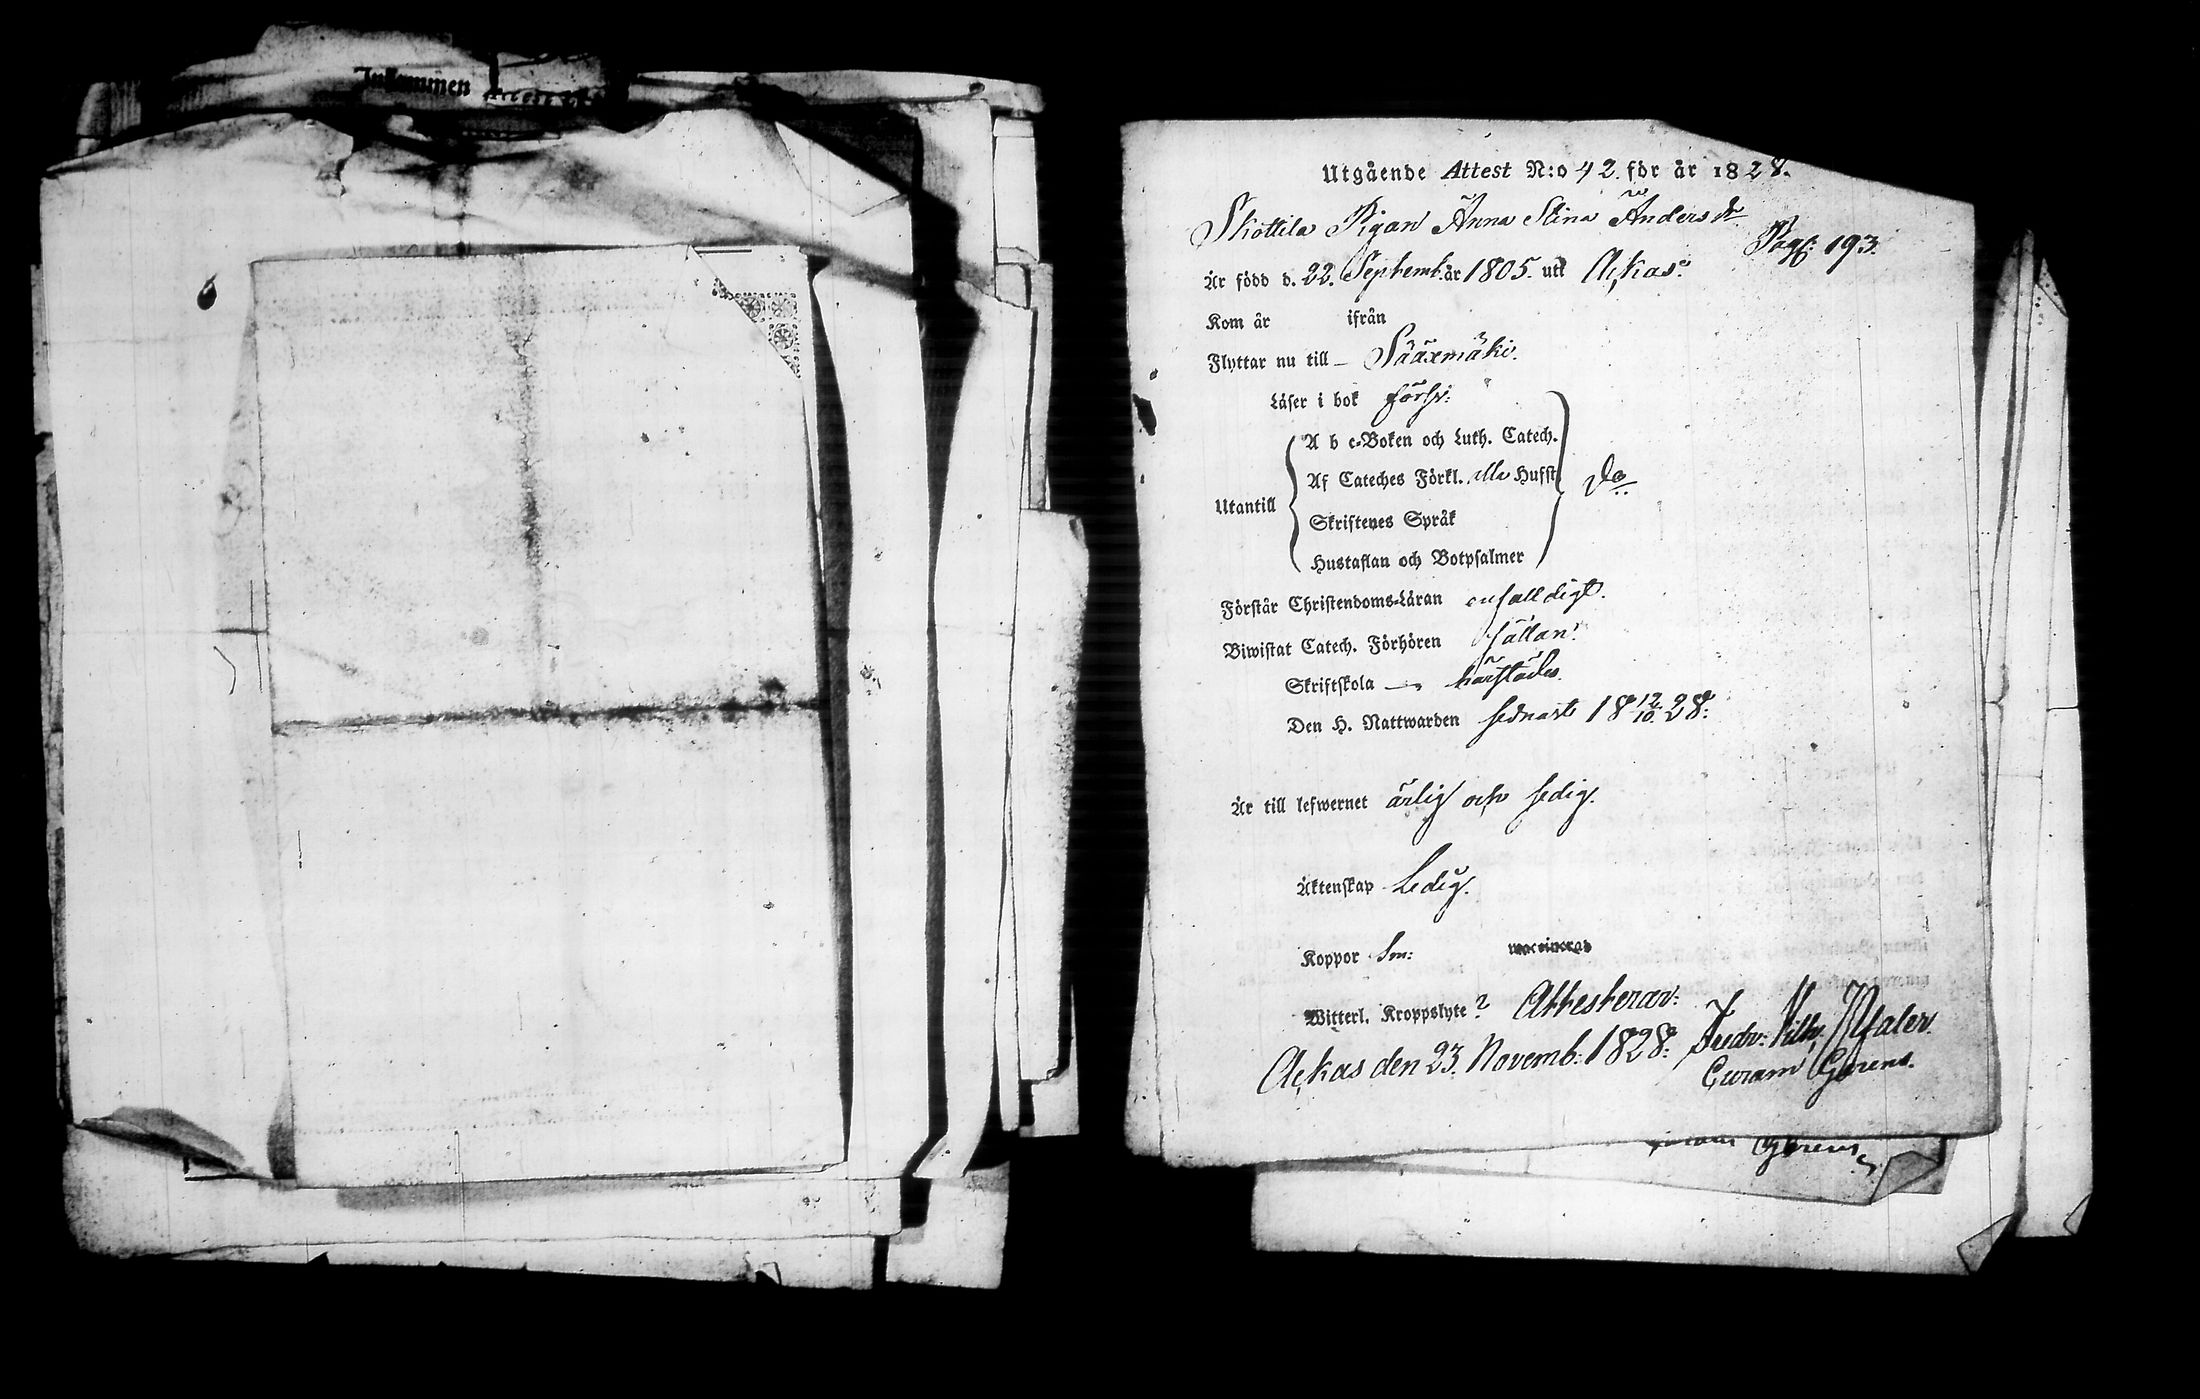 Inkommen
Utgående Attest N:o 42. för år 1828.
Skottila Pigan Anna Stina Anders dr
Pag: 193.
Är född d. 22. Septemb. år 1805. uti Ackas.
Kom år ifrån
Flyttar nu till — Sääxmäki.
Läser i bok försv:
Utantill
A b c-Boken och Luth. Catech.
Af Cateches Förkl. alla Hufst.
Do
Skriftenes Språk
Hustaflan och Botpsalmer
Förstår Christendoms-Läran enfalldigt.
Biwistat Catech. Förhören sällan.
Skriftskola — härstädes.
Den H. Nattwarden sednast 18 12/10 28.
Är till lefwernet ärlig och sedig.
Äktenskap Ledig.
Koppor vaccineras
Witterl. Kroppslyte? Attesterar:
Ackas den 23. Novemb: 1828. Fredr: Vilh:
Curam Gerens.
Curam Gerens